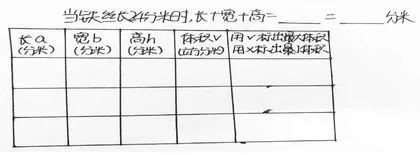 当铁丝长24分米时,长+宽+高=____=____分米
长a
(分米)
宽b
(分米)
高h
(分米)
体积V
(立方分米)
用√标出最大体积
用×标出最小体积